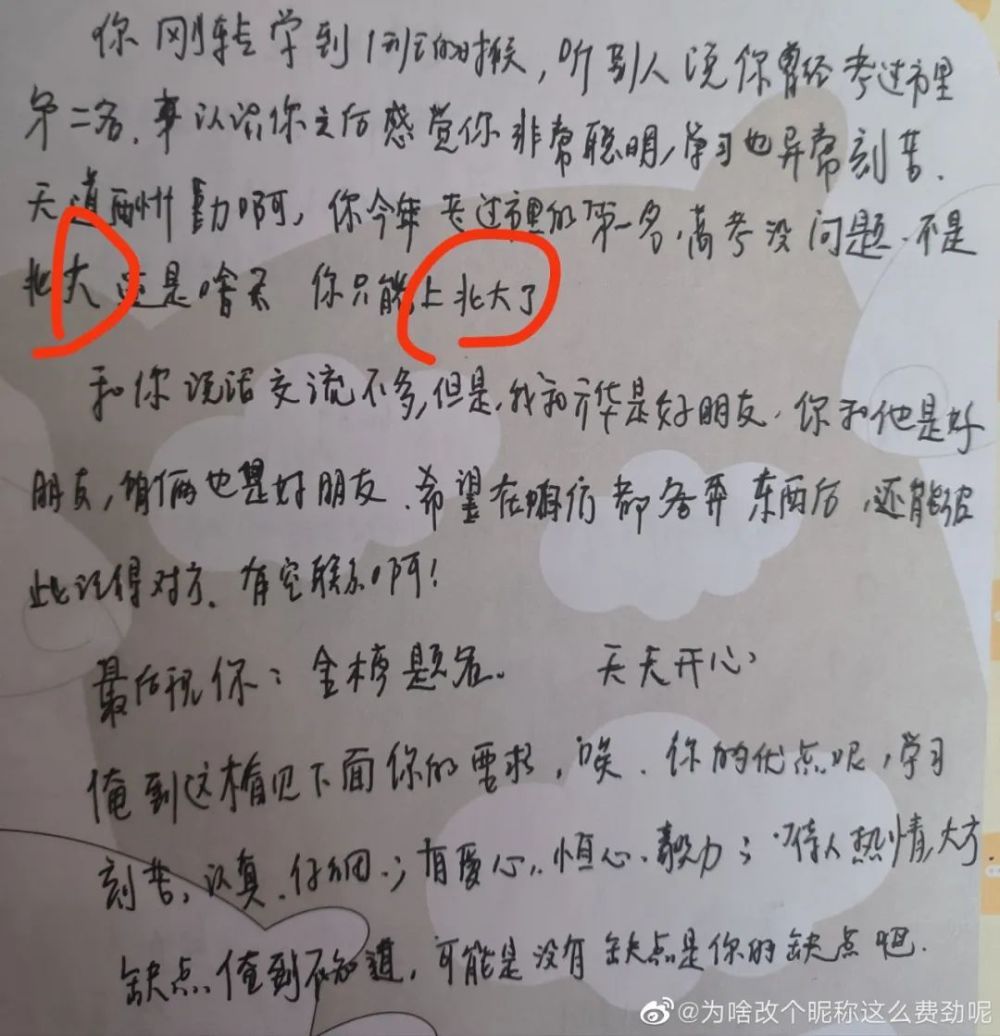 你刚转学到1班的时候,听别人说你曾经考过市里
第二名,事认识你之后感觉你非常聪明,学习也异常刻苦.
天道酬勤啊,你今年考过市里的第一名,高考没问题.不是
北大还是啥不 你只能上北大了
和你说话交流不多,但是,我和齐华是好朋友.你和他是好
朋友,咱俩也是好朋友.希望在咱们都各奔东西后,还能彼
此记得对方.有空联系啊!
最后祝你:金榜题名。 天天开心
俺到这才看见下面你的要求,唉.你的优点呢,学习
刻苦,认真.仔细.;有爱心,.恒心.毅力;待人热情,大方.
缺点俺到不知道,可能是没有缺点是你的缺点吧.
@为啥改个昵称这么费劲呢